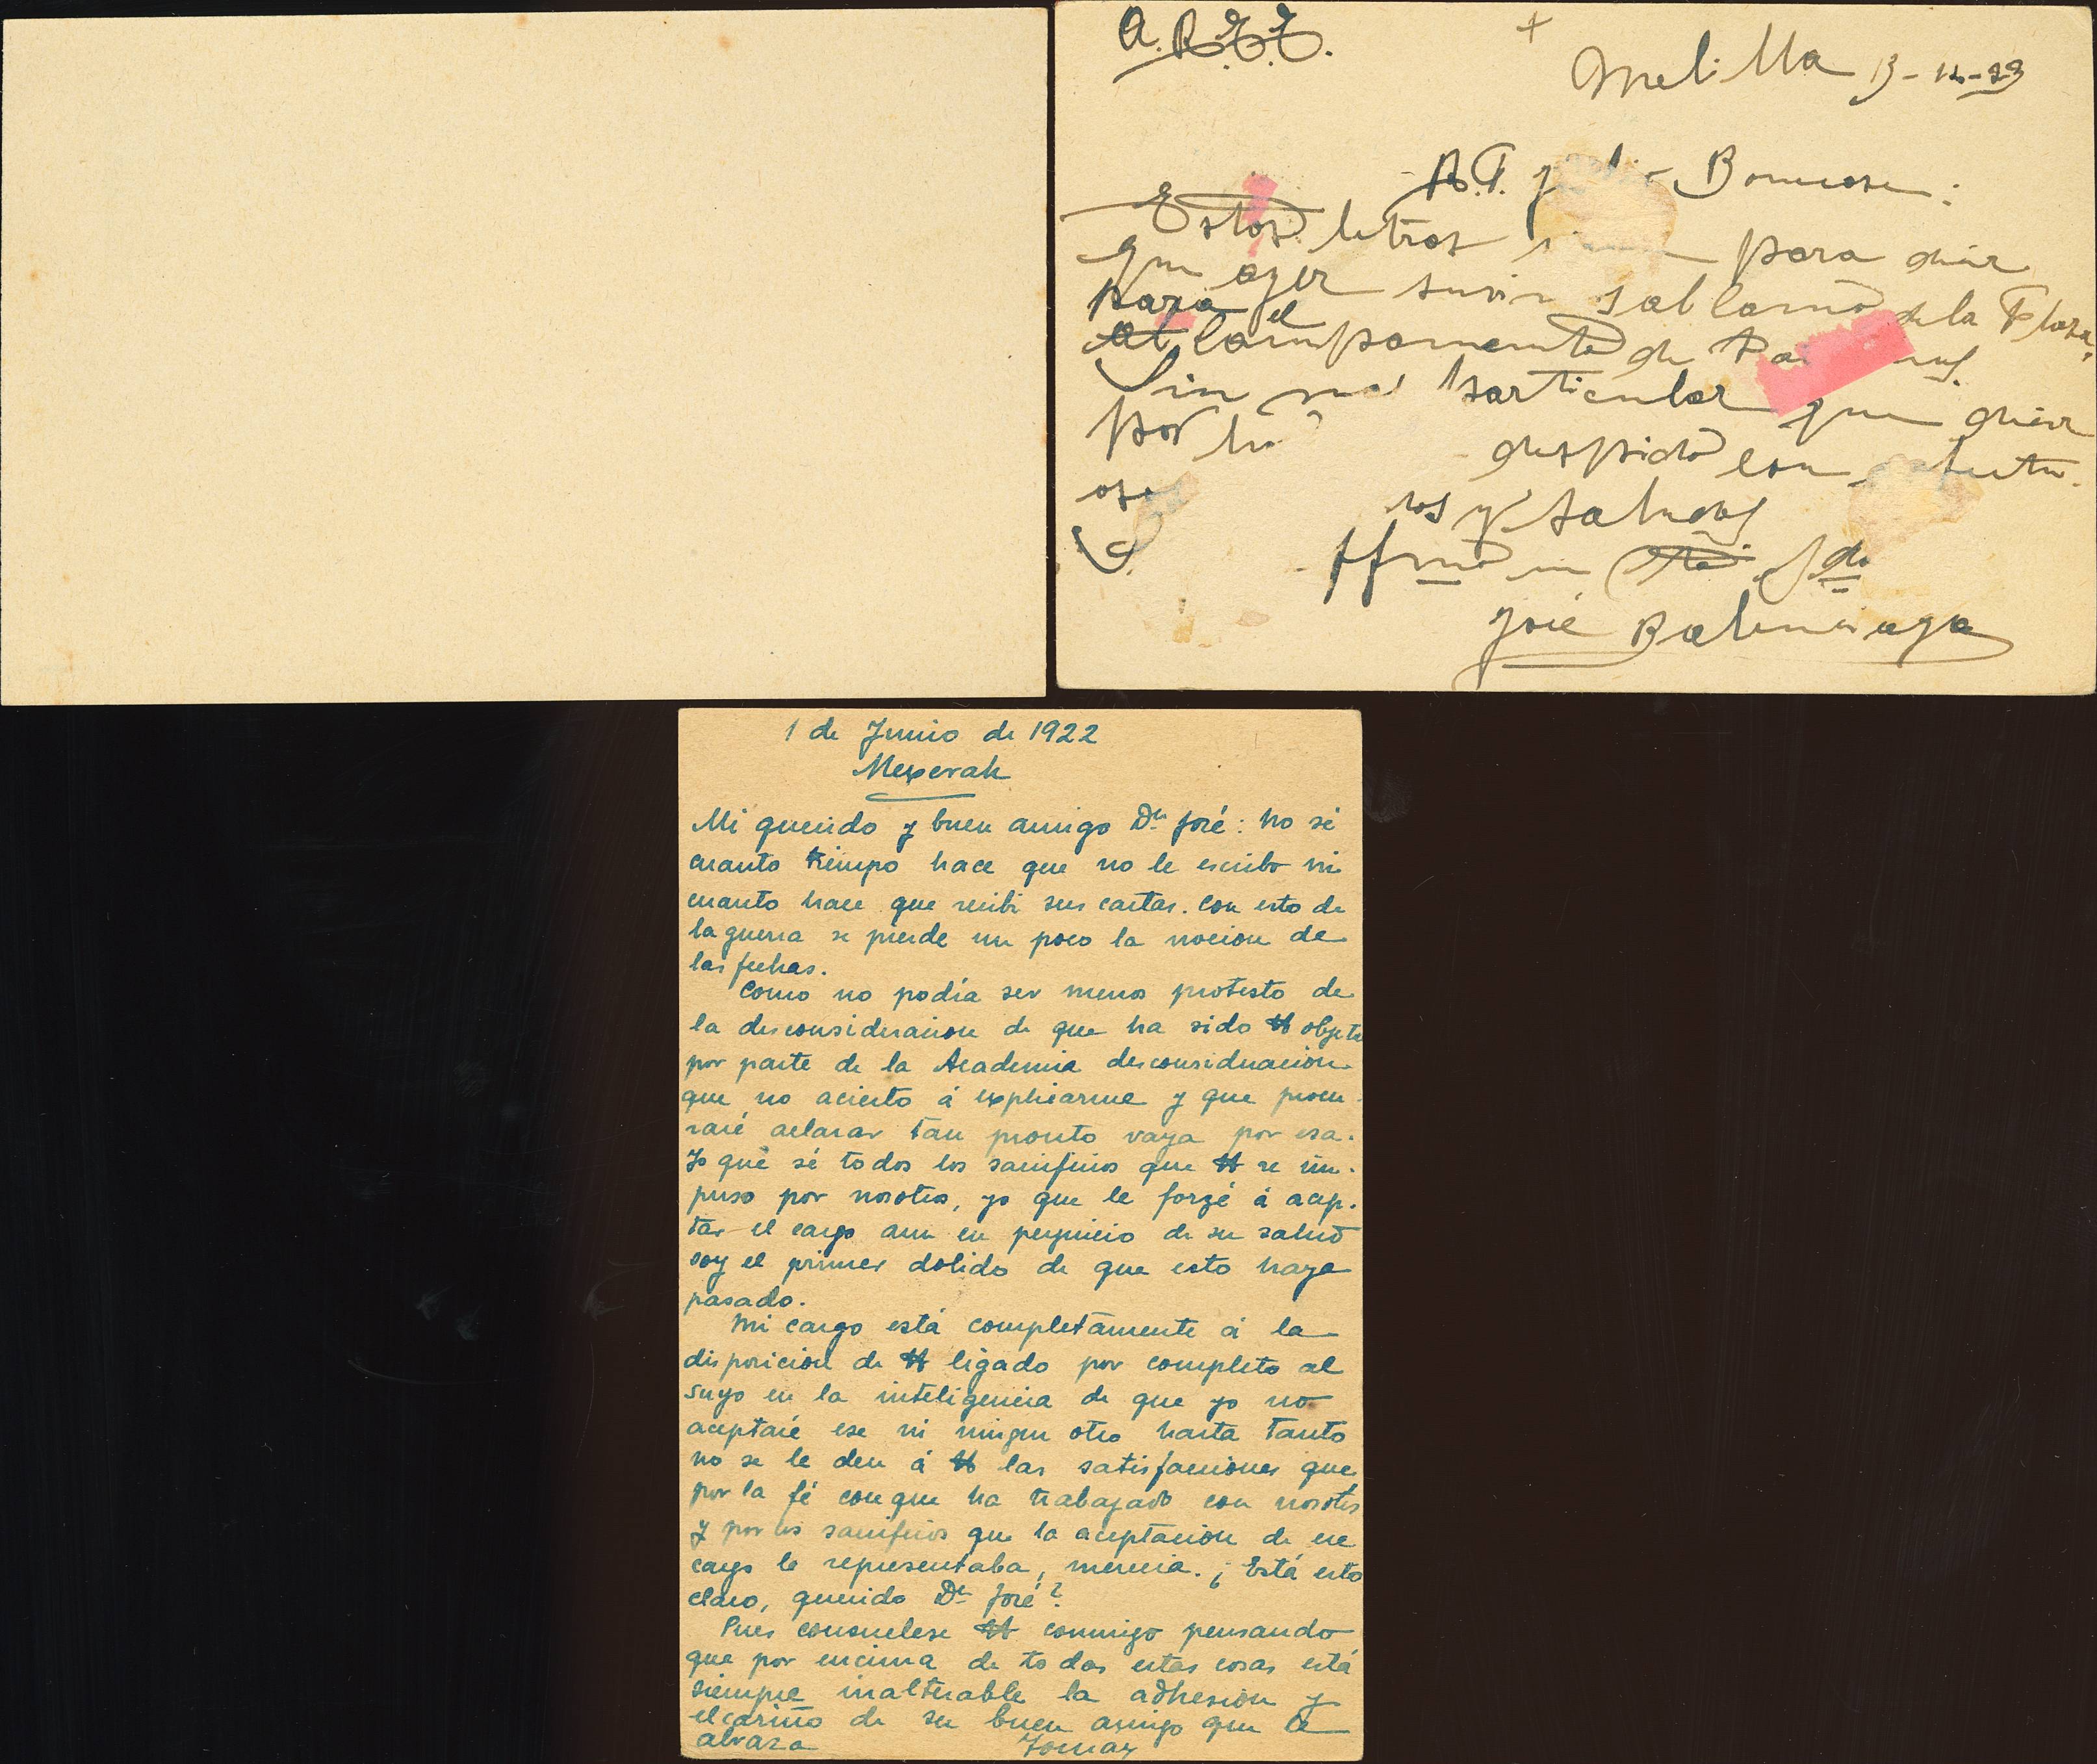 A. R. Z. Z.
+
Melilla 13-12-23
R. P. Bonuose :
Estas letras para decir
que ayer de la Plaza,
para el
al Campamento de
Sin mas particular que decir
por
despido con
ros y saludos
affmo en Cto. S. do
José Balenciaga
1 de Junio de 1922
Mexerah
Mi querido y buen amigo Dn José: No sé
cuanto tiempo hace que no le escribo ni
cuanto hace que recibi sus cartas. Con esto de
la guerra se pierde un poco la nocion de
las fechas.
Como no podía ser menos protesto de
la desconsideracion de que ha sido V objeto
por parte de la Academia desconsideracion
que no acierto á explicarme y que procu-
raré aclarar tan pronto vaya por esa.
Yo que sé todos los sacrificios que V se im-
puso por nosotros, yo que le forzé á acep-
tar el cargo aun en perjuicio de su salud
soy el primer dolido de que esto haya
pasado.
Mi cargo está completamente á la
disposicion de V ligado por completo al
suyo en la inteligencia de que yo no
aceptaré ese ni ningun otro hasta tanto
no se le den á V las satisfacciones que
por la fé con que ha trabajado con nosotros
y por los sacrificios que la aceptacion de ese
cargo le representaba, merecia. ¿Está esto
claro, querido Dn José?
Pues consuelese V conmigo pensando
que por encima de todas estas cosas está
siempre inalterable la adhesion y
el cariño de su buen amigo que le
abraza Tomas